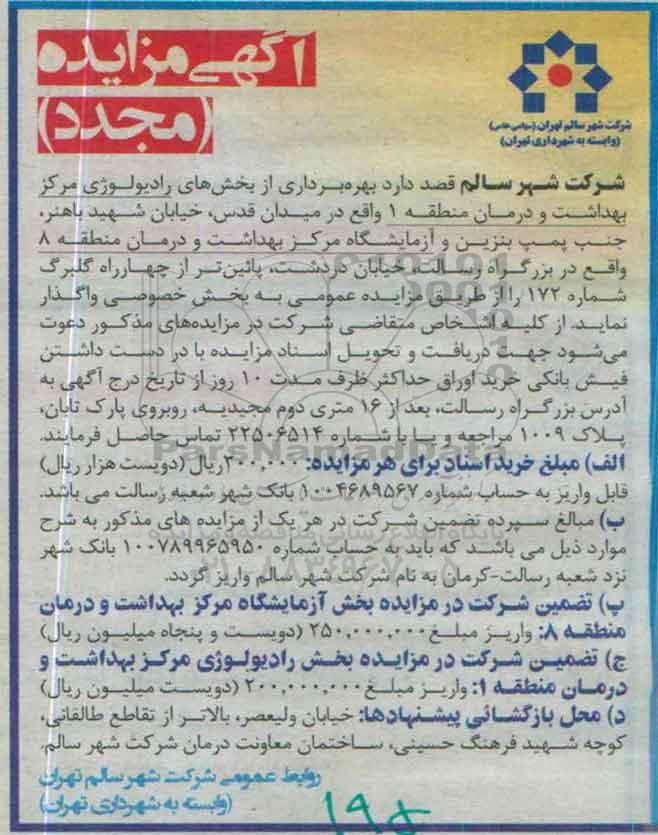 آگهی مزایده
(مجدد)
شرکت شهر سالم تهران (سهامی خاص)
(وابسته به شهرداری تهران)
شرکت شهر سالم قصد دارد بهره‌برداری از بخش‌های رادیولوژی مرکز
بهداشت و درمان منطقه ۱ واقع در میدان قدس، خیابان شهید باهنر،
جنب پمپ بنزین و آزمایشگاه مرکز بهداشت و درمان منطقه ۸
واقع در بزرگراه رسالت، خیابان دردشت، پائین‌تر از چهارراه گلبرگ
شماره ۱۷۲ را از طریق مزایده عمومی به بخش خصوصی واگذار
نماید. از کلیه اشخاص متقاضی شرکت در مزایده‌های مذکور دعوت
می‌شود جهت دریافت و تحویل اسناد مزایده با در دست داشتن
فیش بانکی خرید اوراق حداکثر ظرف مدت ۱۰ روز از تاریخ درج آگهی به
آدرس بزرگراه رسالت، بعد از ۱۶ متری دوم مجیدیه، روبروی پارک تابان،
پلاک ۱۰۰۹ مراجعه و یا با شماره ۲۲۵۰۶۵۱۴ تماس حاصل فرمایند.
الف) مبلغ خرید اسناد برای هر مزایده: ۲۰۰,۰۰۰ ریال (دویست هزار ریال)
قابل واریز به حساب شماره ۱۰۰۴۶۸۹۵۶۷ بانک شهر شعبه رسالت می باشد.
ب) مبالغ سپرده تضمین شرکت در هر یک از مزایده های مذکور به شرح
موارد ذیل می باشد که باید به حساب شماره ۱۰۰۷۸۹۹۶۵۹۵۰ بانک شهر
نزد شعبه رسالت-کرمان به نام شرکت شهر سالم واریز گردد.
پ) تضمین شرکت در مزایده بخش آزمایشگاه مرکز بهداشت و درمان
منطقه ۸: واریز مبلغ ۲۵۰,۰۰۰,۰۰۰ (دویست و پنجاه میلیون ریال)
ج) تضمین شرکت در مزایده بخش رادیولوژی مرکز بهداشت و
درمان منطقه ۱: واریز مبلغ ۲۰۰,۰۰۰,۰۰۰ (دویست میلیون ریال)
د) محل بازگشائی پیشنهادها: خیابان ولیعصر، بالاتر از تقاطع طالقانی،
کوچه شهید فرهنگ حسینی، ساختمان معاونت درمان شرکت شهر سالم.
روابط عمومی شرکت شهر سالم تهران
(وابسته به شهرداری تهران)
ParsNamadData